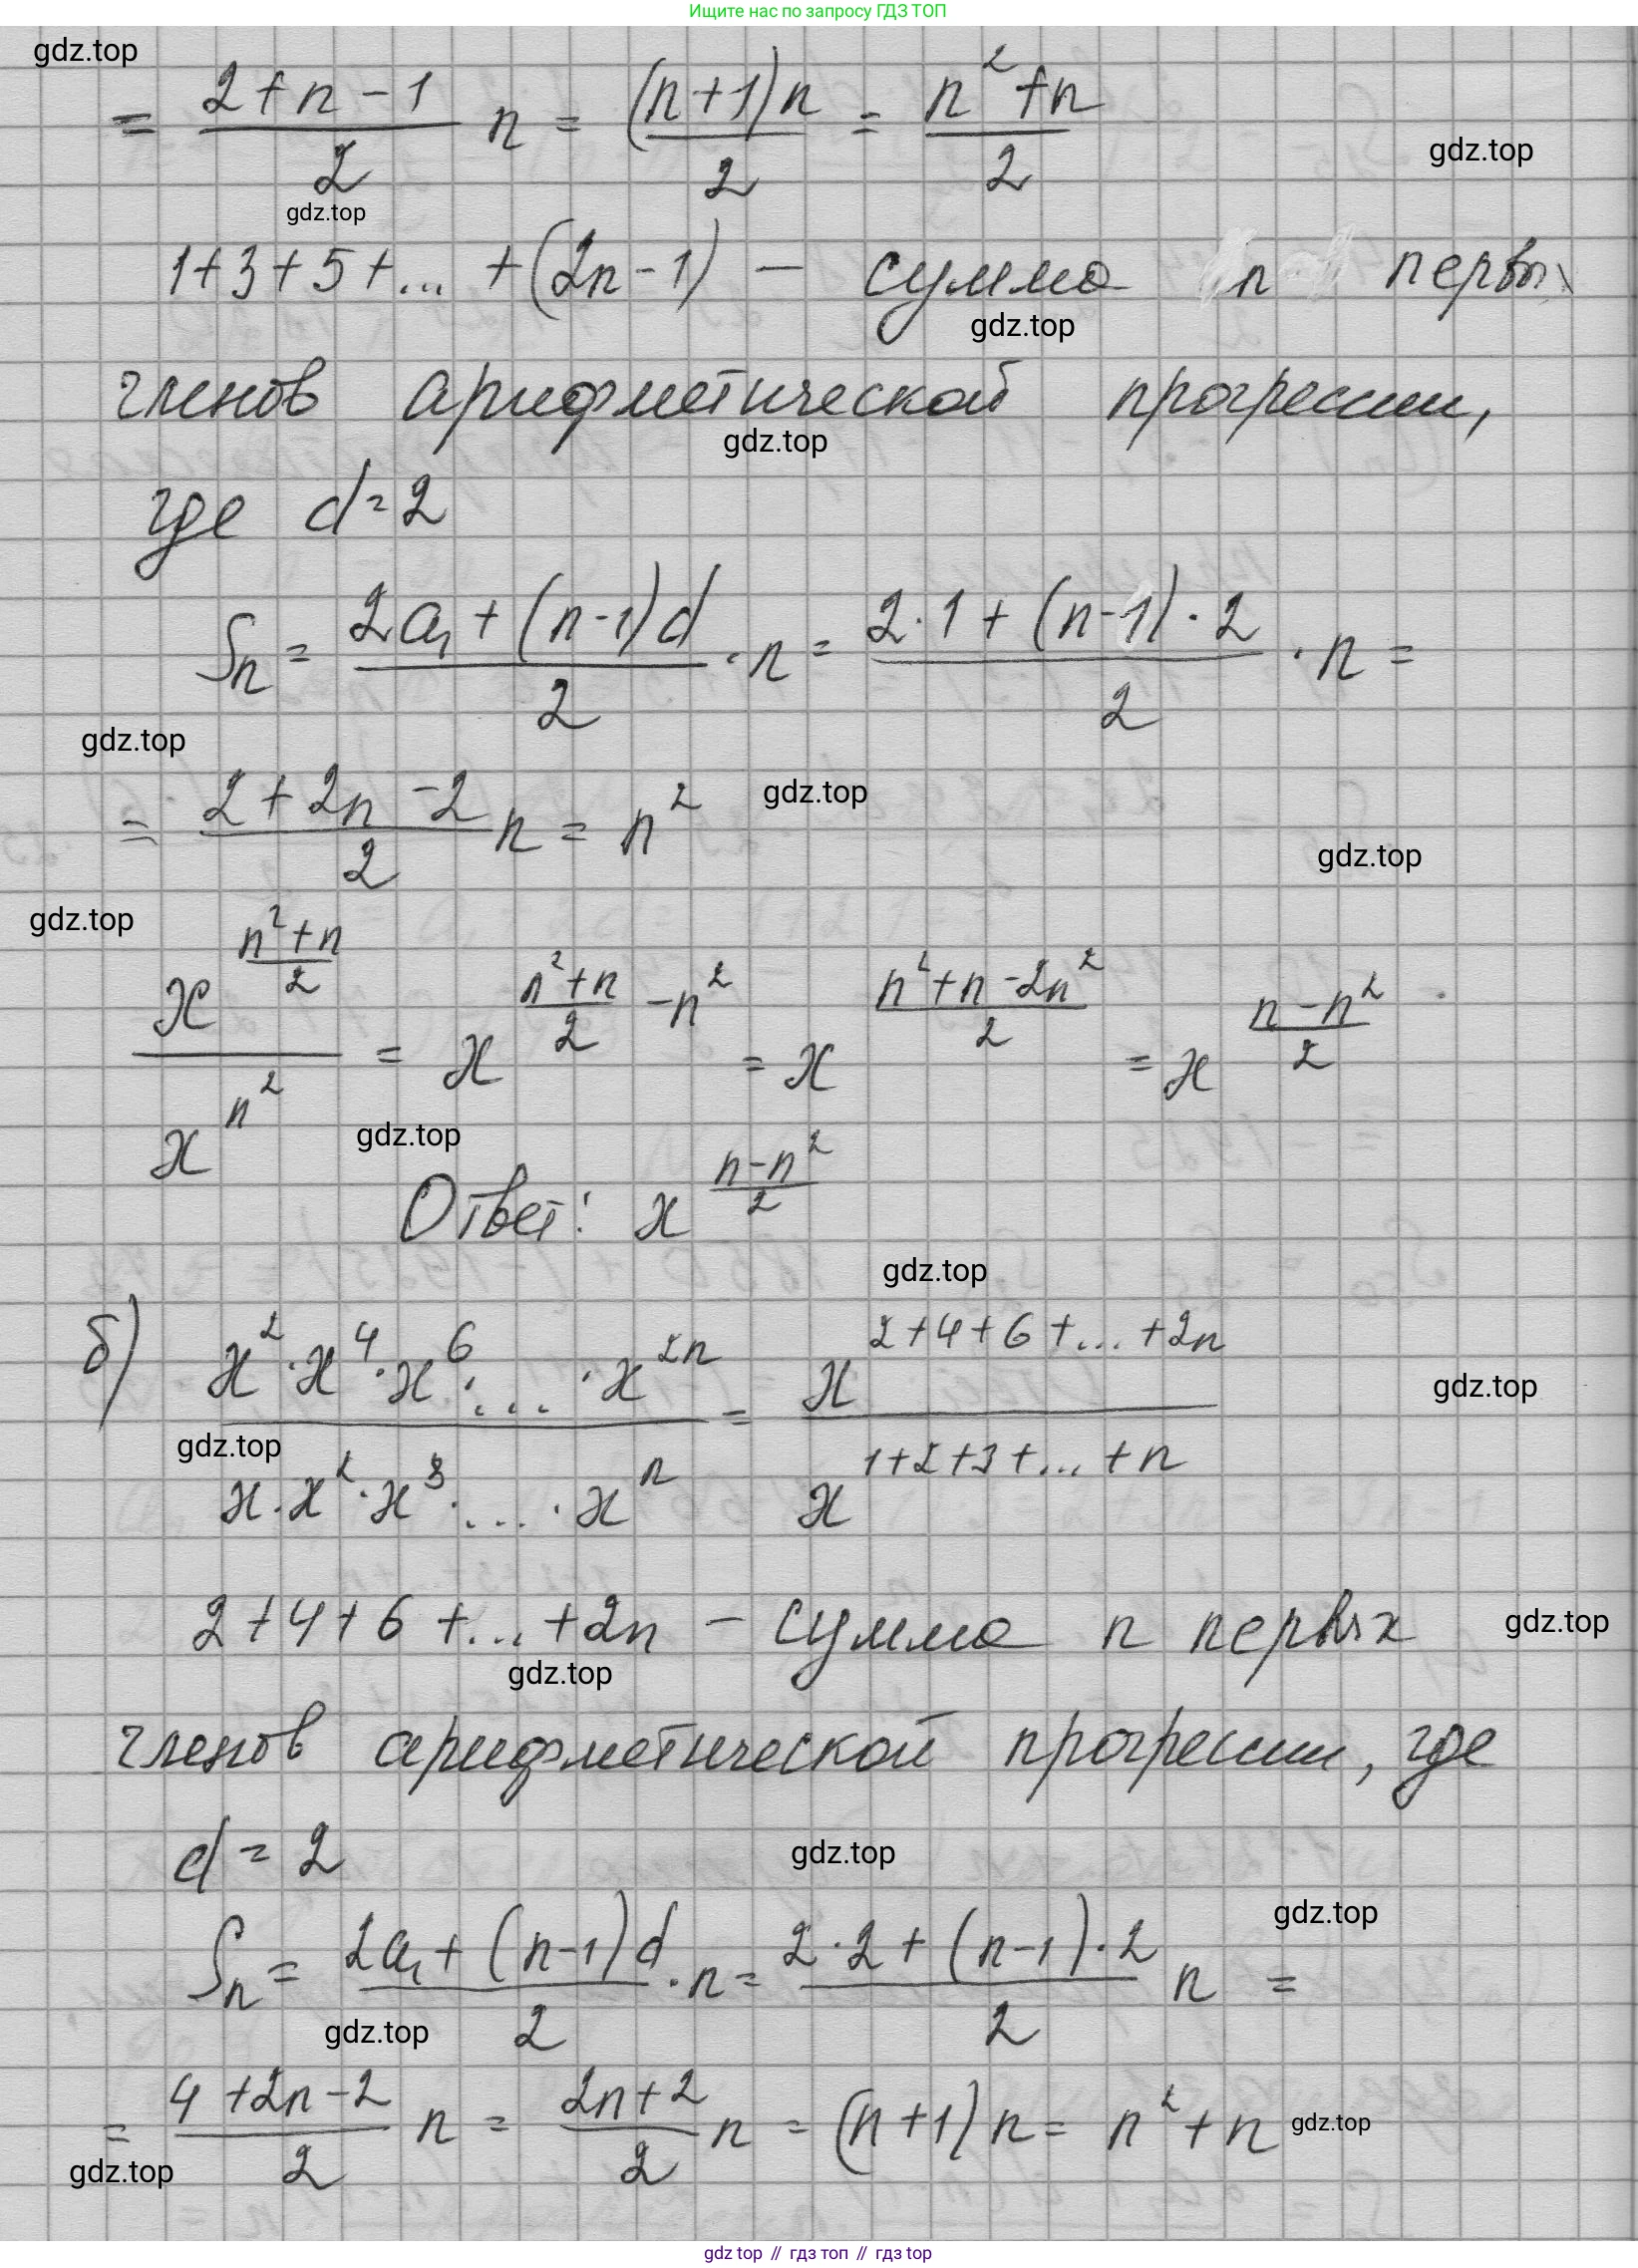 Ищите нас по запросу ГДЗ ТОП
gdz.top
= (2+n-1)/2 n = (n+1)n/2 = (n²+n)/2
gdz.top
gdz.top
1+3+5+... +(2n-1) – сумма n первых
gdz.top
членов арифметической прогрессии,
gdz.top
где d=2
Sn = (2a₁+(n-1)d)/2 · n = (2·1+(n-1)·2)/2 · n =
gdz.top
= (2+2n-2)/2 n = n²
gdz.top
gdz.top
gdz.top
x^((n²+n)/2) / x^(n²) = x^((n²+n)/2 - n²) = x^((n²+n-2n²)/2) = x^((n-n²)/2)
gdz.top
Ответ: x^((n-n²)/2)
gdz.top
б) (x²·x⁴·x⁶·...·x^(2n)) / (x·x²·x³·...·x^n) = x^(2+4+6+...+2n) / x^(1+2+3+...+n)
gdz.top
gdz.top
2+4+6+...+2n – сумма n первых
gdz.top
gdz.top
членов арифметической прогрессии, где
d=2
gdz.top
gdz.top
Sn = (2a₁+(n-1)d)/2 · n = (2·2+(n-1)·2)/2 n =
gdz.top
= (4+2n-2)/2 n = (2n+2)/2 n = (n+1)n = n²+n
gdz.top
gdz.top
gdz top // гдз топ // гдз top